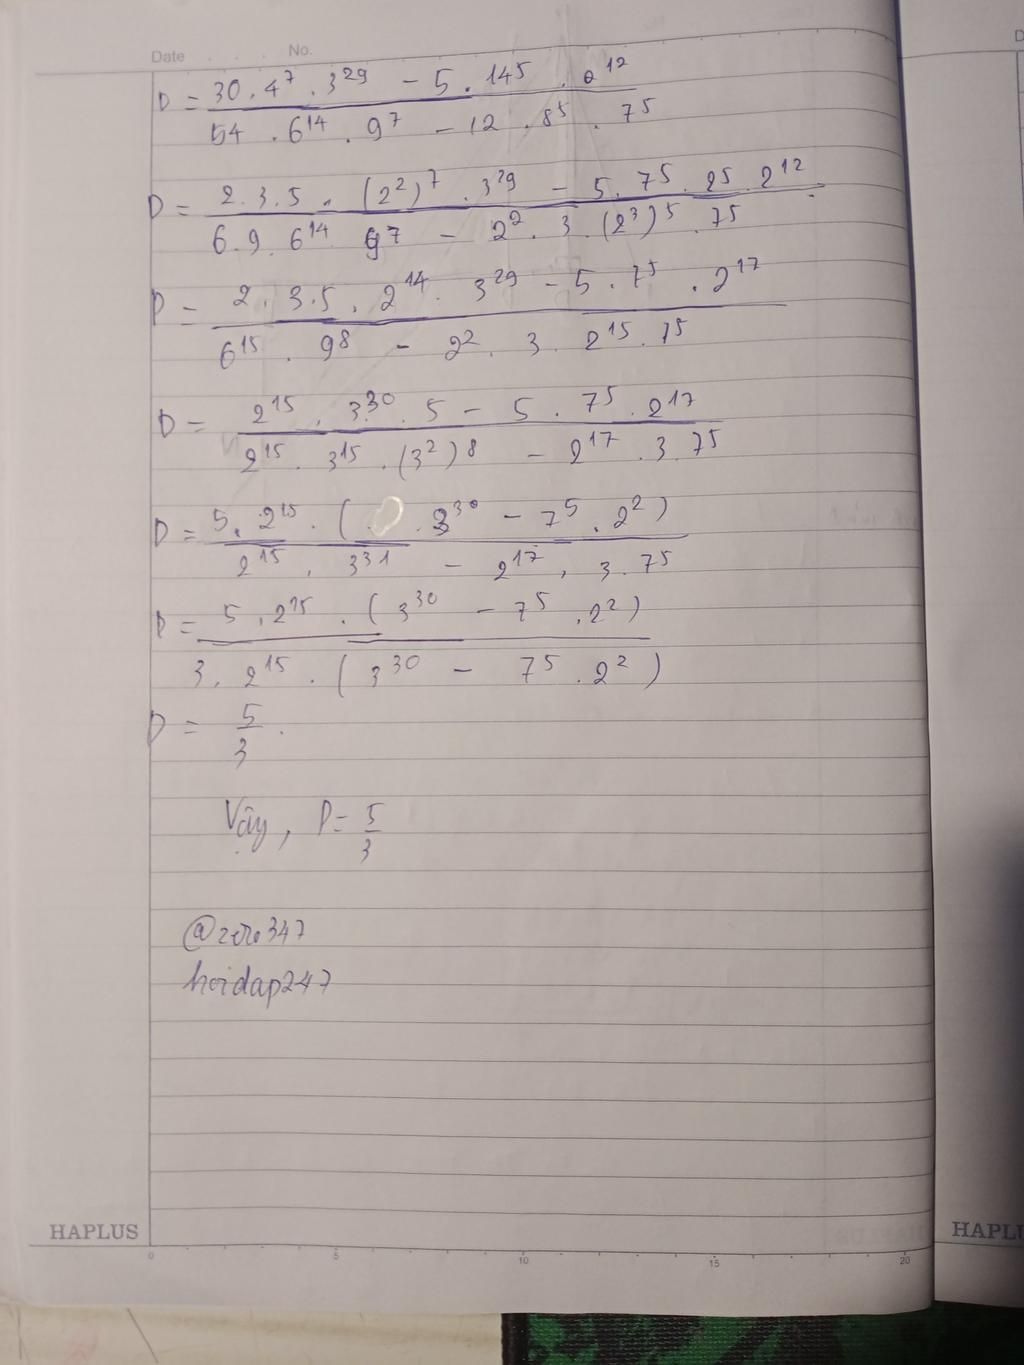 Date No.
D = 30.4⁷.3²⁹ - 5.14⁵.2¹² / 54.6¹⁴.9⁷ - 12.8⁵.7⁵
D = 2.3.5.(2²)⁷.3²⁹ - 5.7⁵.2⁵.2¹² / 6.9.6¹⁴ 9⁷ - 2².3.(2³)⁵.7⁵
D = 2.3.5.2¹⁴.3²⁹ - 5.7⁵.2¹⁷ / 6¹⁵.9⁸ - 2².3.2¹⁵.7⁵
D = 2¹⁵.3³⁰.5 - 5.7⁵.2¹⁷ / 2¹⁵.3¹⁵.(3²)⁸ - 2¹⁷.3.7⁵
D = 5.2¹⁵.(3³⁰ - 7⁵.2²) / 2¹⁵.3³¹ - 2¹⁷.3.7⁵
D = 5.2¹⁵.(3³⁰ - 7⁵.2²) / 3.2¹⁵.(3³⁰ - 7⁵.2²)
D = 5/3.
Vậy, D = 5/3
@zero347
hoidap247
HAPLUS
0 5 10 15 20